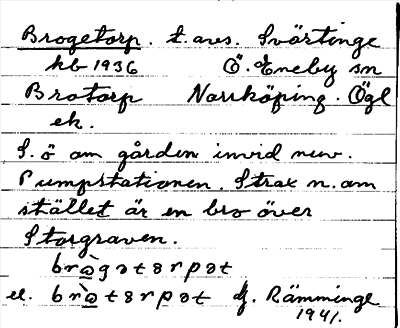 Brogetorp. t. avs. Svärtinge
kb 1936 Ö. Eneby sn
Brotorp Norrköping. Ögl
ek.
S. ö om gården invid nuv.
Pumpstationen. Strax n. om
stället är en bro över
Storgraven.
brògətɔrpət
el. bròtɔrpət Rämminge
1941.